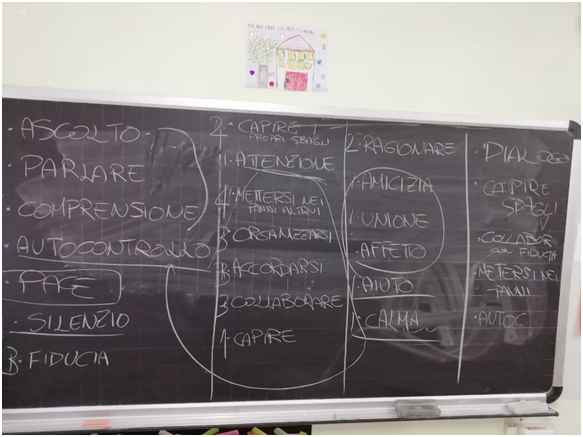 · ASCOLTO
· PARLARE
· COMPRENSIONE
· AUTOCONTROLLO
· PACE
· SILENZIO
3· FIDUCIA
2· CAPIRE
PROPRI SBAGLI
1· ATTENZIONE
4· METTERSI NEI
PANNI ALTRUI
3· ORGANIZZARSI
3· ACCORDARSI
3· COLLABORARE
1· CAPIRE
2· RAGIONARE
· AMICIZIA
· UNIONE
· AFFETO
· AIUTO
· CALMA
· CAPIRE
SBAGLI
· COLLABOR
CON FIDUCIA
· METTERSI NEI
PANNI
· AUTOC